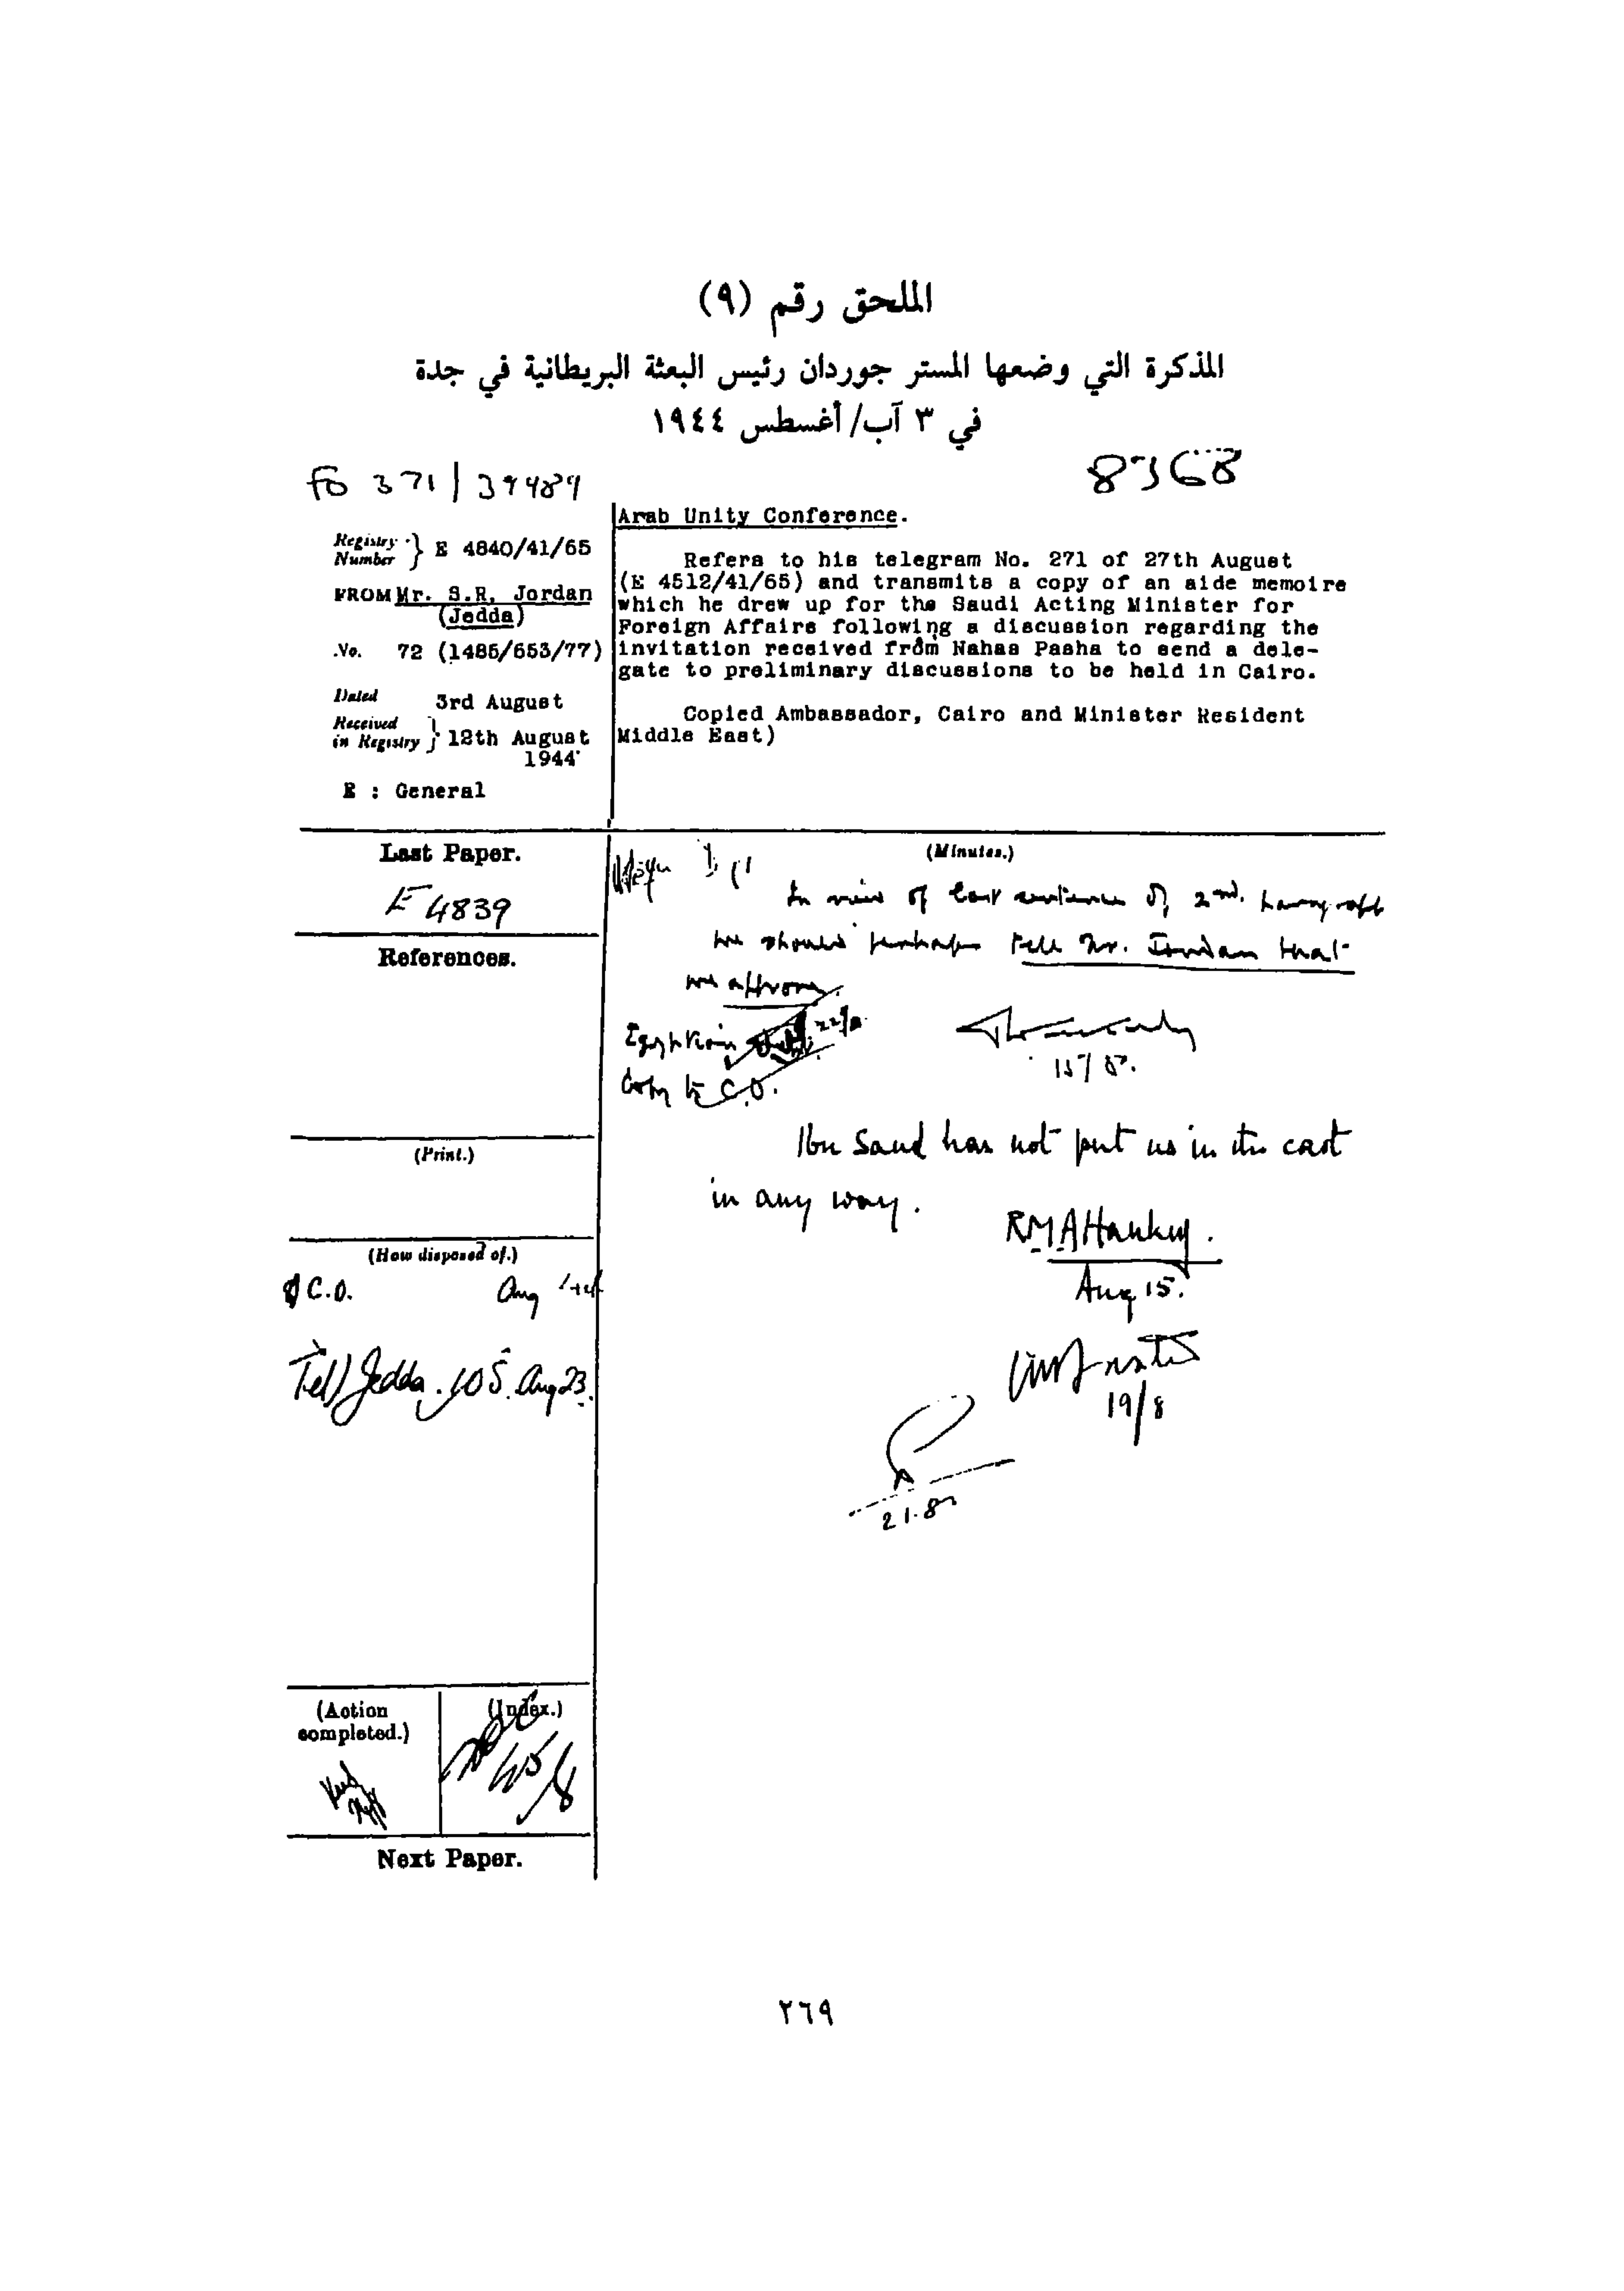 الملحق رقم (٩)
المذكرة التي وضعها المستر جوردان رئيس البعثة البريطانية في جدة
في ٣ آب/أغسطس ١٩٤٤
FO 371/39489
Registry Number } E 4840/41/65
FROM Mr. S.R. Jordan
(Jedda)
No. 72 (1485/653/77)
Dated 3rd August
Received in Registry } 12th August
1944
E : General
Arab Unity Conference.
Refers to his telegram No. 271 of 27th August
(E 4512/41/65) and transmits a copy of an aide memoire
which he drew up for the Saudi Acting Minister for
Foreign Affairs following a discussion regarding the
invitation received from Nahas Pasha to send a dele-
gate to preliminary discussions to be held in Cairo.
Copied Ambassador, Cairo and Minister Resident
Middle East)
Last Paper.
E 4839
References.
(Print.)
(How disposed of.)
C.O. Aug
Tel) Jedda. 105. Aug 23.
(Action completed.)
(Index.)
Next Paper.
(Minutes.)
In view of last sentence of 2nd. paragraph
we should perhaps tell Mr. Jordan that
we approve.
Egyptian 22/8
Copy to C.O.
15/8.
Ibn Saud has not put us in the cart
in any way.
RMAHankey.
Aug 15.
19/8
21.8
٢٦٩